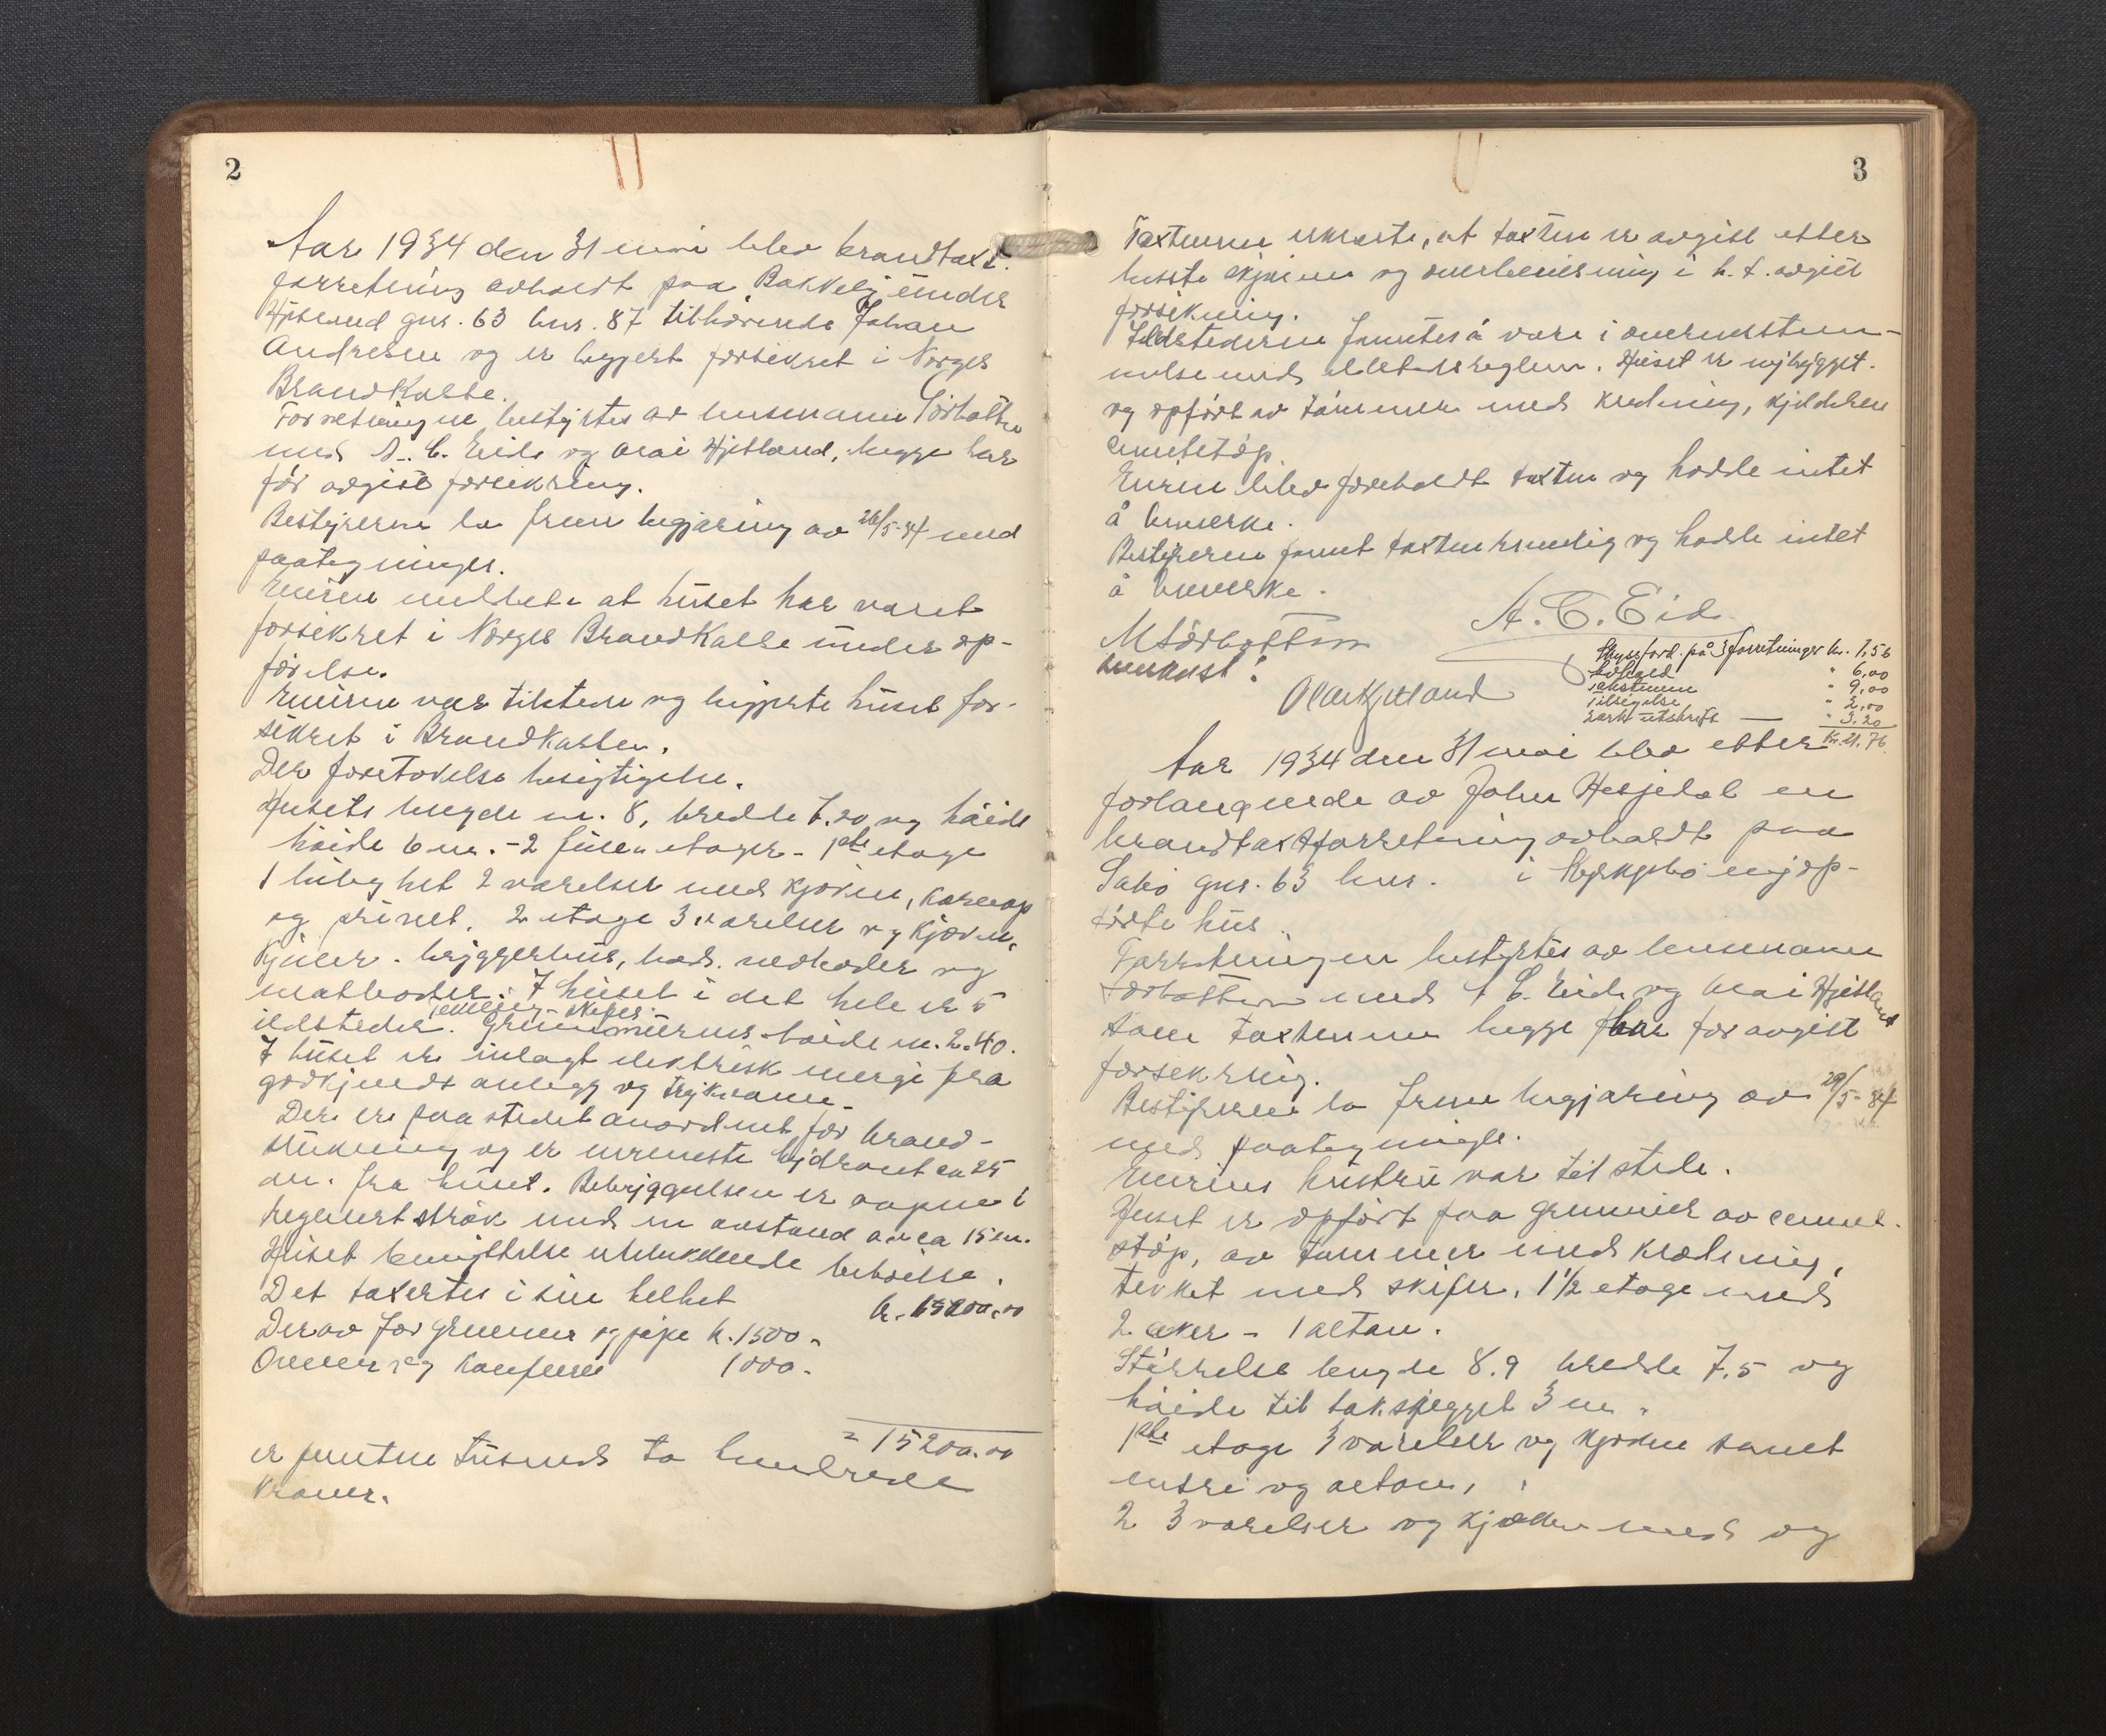 2
Aar 1934 den 31 mai blev brandtakst
forretning avholdt paa Bakkely under
gnr. 63 bnr. 87 tilhørende Johan
Andresen og er begjert forsikret i Norges
BrandKasse.
Forretningen bestyrtes av lensmann Sørbotten
med A. C. Eide og Olai Hjetland, begge har
før avgitt forsikring.
Bestyreren la frem begjæring av 26/5-34 med
paategninger.
Eieren meldte at huset har vært
forsikret i Norges BrandKasse under op-
førelse.
Eieren var tilstede og begjerte huset for-
sikret i BrandKassen.
Der foretokes besigtigelse.
Husets lengde m. 8, bredde 7.20 og høide
høide 6 m. - 2 etager - 1ste etage
1 leilighet 2 værelser med kjøkken,
og privet. 2 etage 3 værelser og kjøkken,
Kjeller - bryggerhus, bad. vedboder og
matboder. I huset i det hele er 5
ildsteder. Grunnmurens høide m. 2.40.
I huset er inlagt elektrisk energi fra
godkjendt anlegg og trykvann.
Der er paa stedet anordnet for brand-
slukning og er nermeste hydrant ca 25
m. fra huset. Bebyggelsen er aapen i
regulert strøk med en avstand av ca 15 m.
Huset benyttelse utelukkende beboelse.
Det taxertes i sin helhet kr. 15200.00
Derav for grunmur og pipe kr. 1500 -
Ovner og Komfyrer 1000 -
= 15200.00
er femten tusend to hundrede
Kroner.
3
Taxtmenn, at taxten er avgitt efter
beste skjønn og overbevisning i h. t. avgitt
forsikring.
Ildstederne fantes å være i overensstem-
melse med. Huset er nybygget
og opført av tømmer med kledning, kjelder
cementstøp.
Eieren blev foreholdt taxten og hadde intet
å bemerke.
Bestyreren fant taxten og hadde intet
å bemerke.
A. C. Eide
M Sørbotten
lensmst.
Olai Hjetland
Skyssgod. på 3 forretninger kr. 1,56
" 6,00
takstmenn " 9,00
Tilsigelse " 2,00
utskrift — " 3.20
Kr. 21.76
Aar 1934 den 31 mai blev efter
forlangende av John Hesjedal en
brandtaxtforretning avholdt paa
Sabø gnr. 63 bnr. i nyop-
førte hus.
Forretningen bestyrtes av lensmann
Sørbotten med A C. Eide og Olai Hjetland
som taxtmenn begge har før avgitt
forsikring.
Bestyreren la frem begjæring av 29/5-34
med paategninger.
Eierens hustru var til stede.
Huset er opført paa grunmur av cement-
støp, av tømmer med kledning,
tekket med skifer. 1 1/2 etage med
2 arker - 1 altan.
Størrelse lengde 8.9 bredde 7.5 og
høide til takskjegget 3 m.
1ste etage 3 værelser og kjøkken samt
entre og altan,
2 3 værelser og kjøkken med og